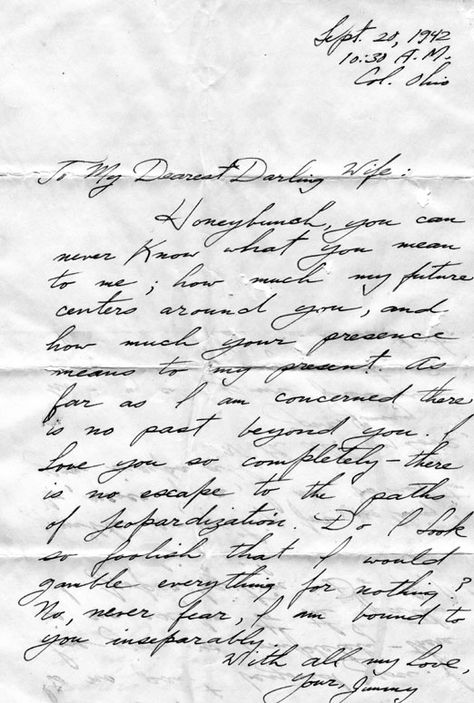 Sept. 20, 1942
10:30 A.M.
Col. Ohio
To My Dearest Darling Wife:
Honeybunch, you can
never know what you mean
to me; how much my future
centers around you, and
how much your presence
means to my present. As
far as I am concerned there
is no past beyond you. I
love you so completely – there
is no escape to the paths
of jeopardization. Do I look
so foolish that I would
gamble everything for nothing?
No, never fear, I am bound to
you inseparably.
With all my love,
Your, Jimmy